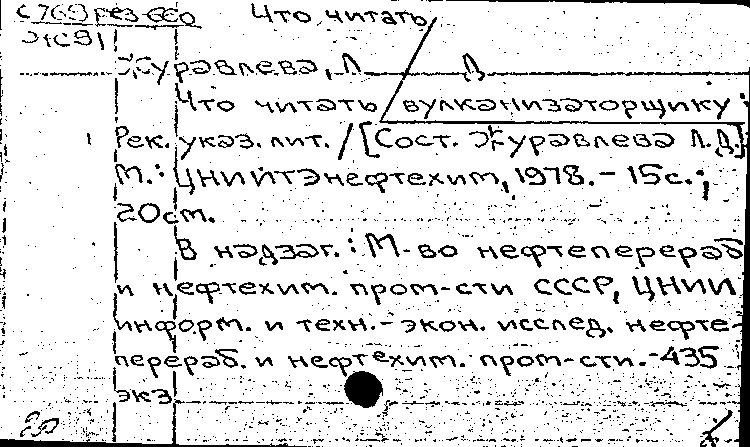 с 769 рез-ссо Что читать
Журавлева, Л. Д
Что читать вулканизаторщику:
Рек. указ. лит. / [Сост. Журавлева Л.Д.]
М.: ЦНИИТЭнефтехим, 1978. - 15с.;
20см.
В надзаг.: М-во нефтеперераб
и нефтехим. пром-сти СССР, ЦНИИ
информ. и техн.-экон. исслед. нефте-
перераб. и нефтехим. пром-сти. - 435
экз.